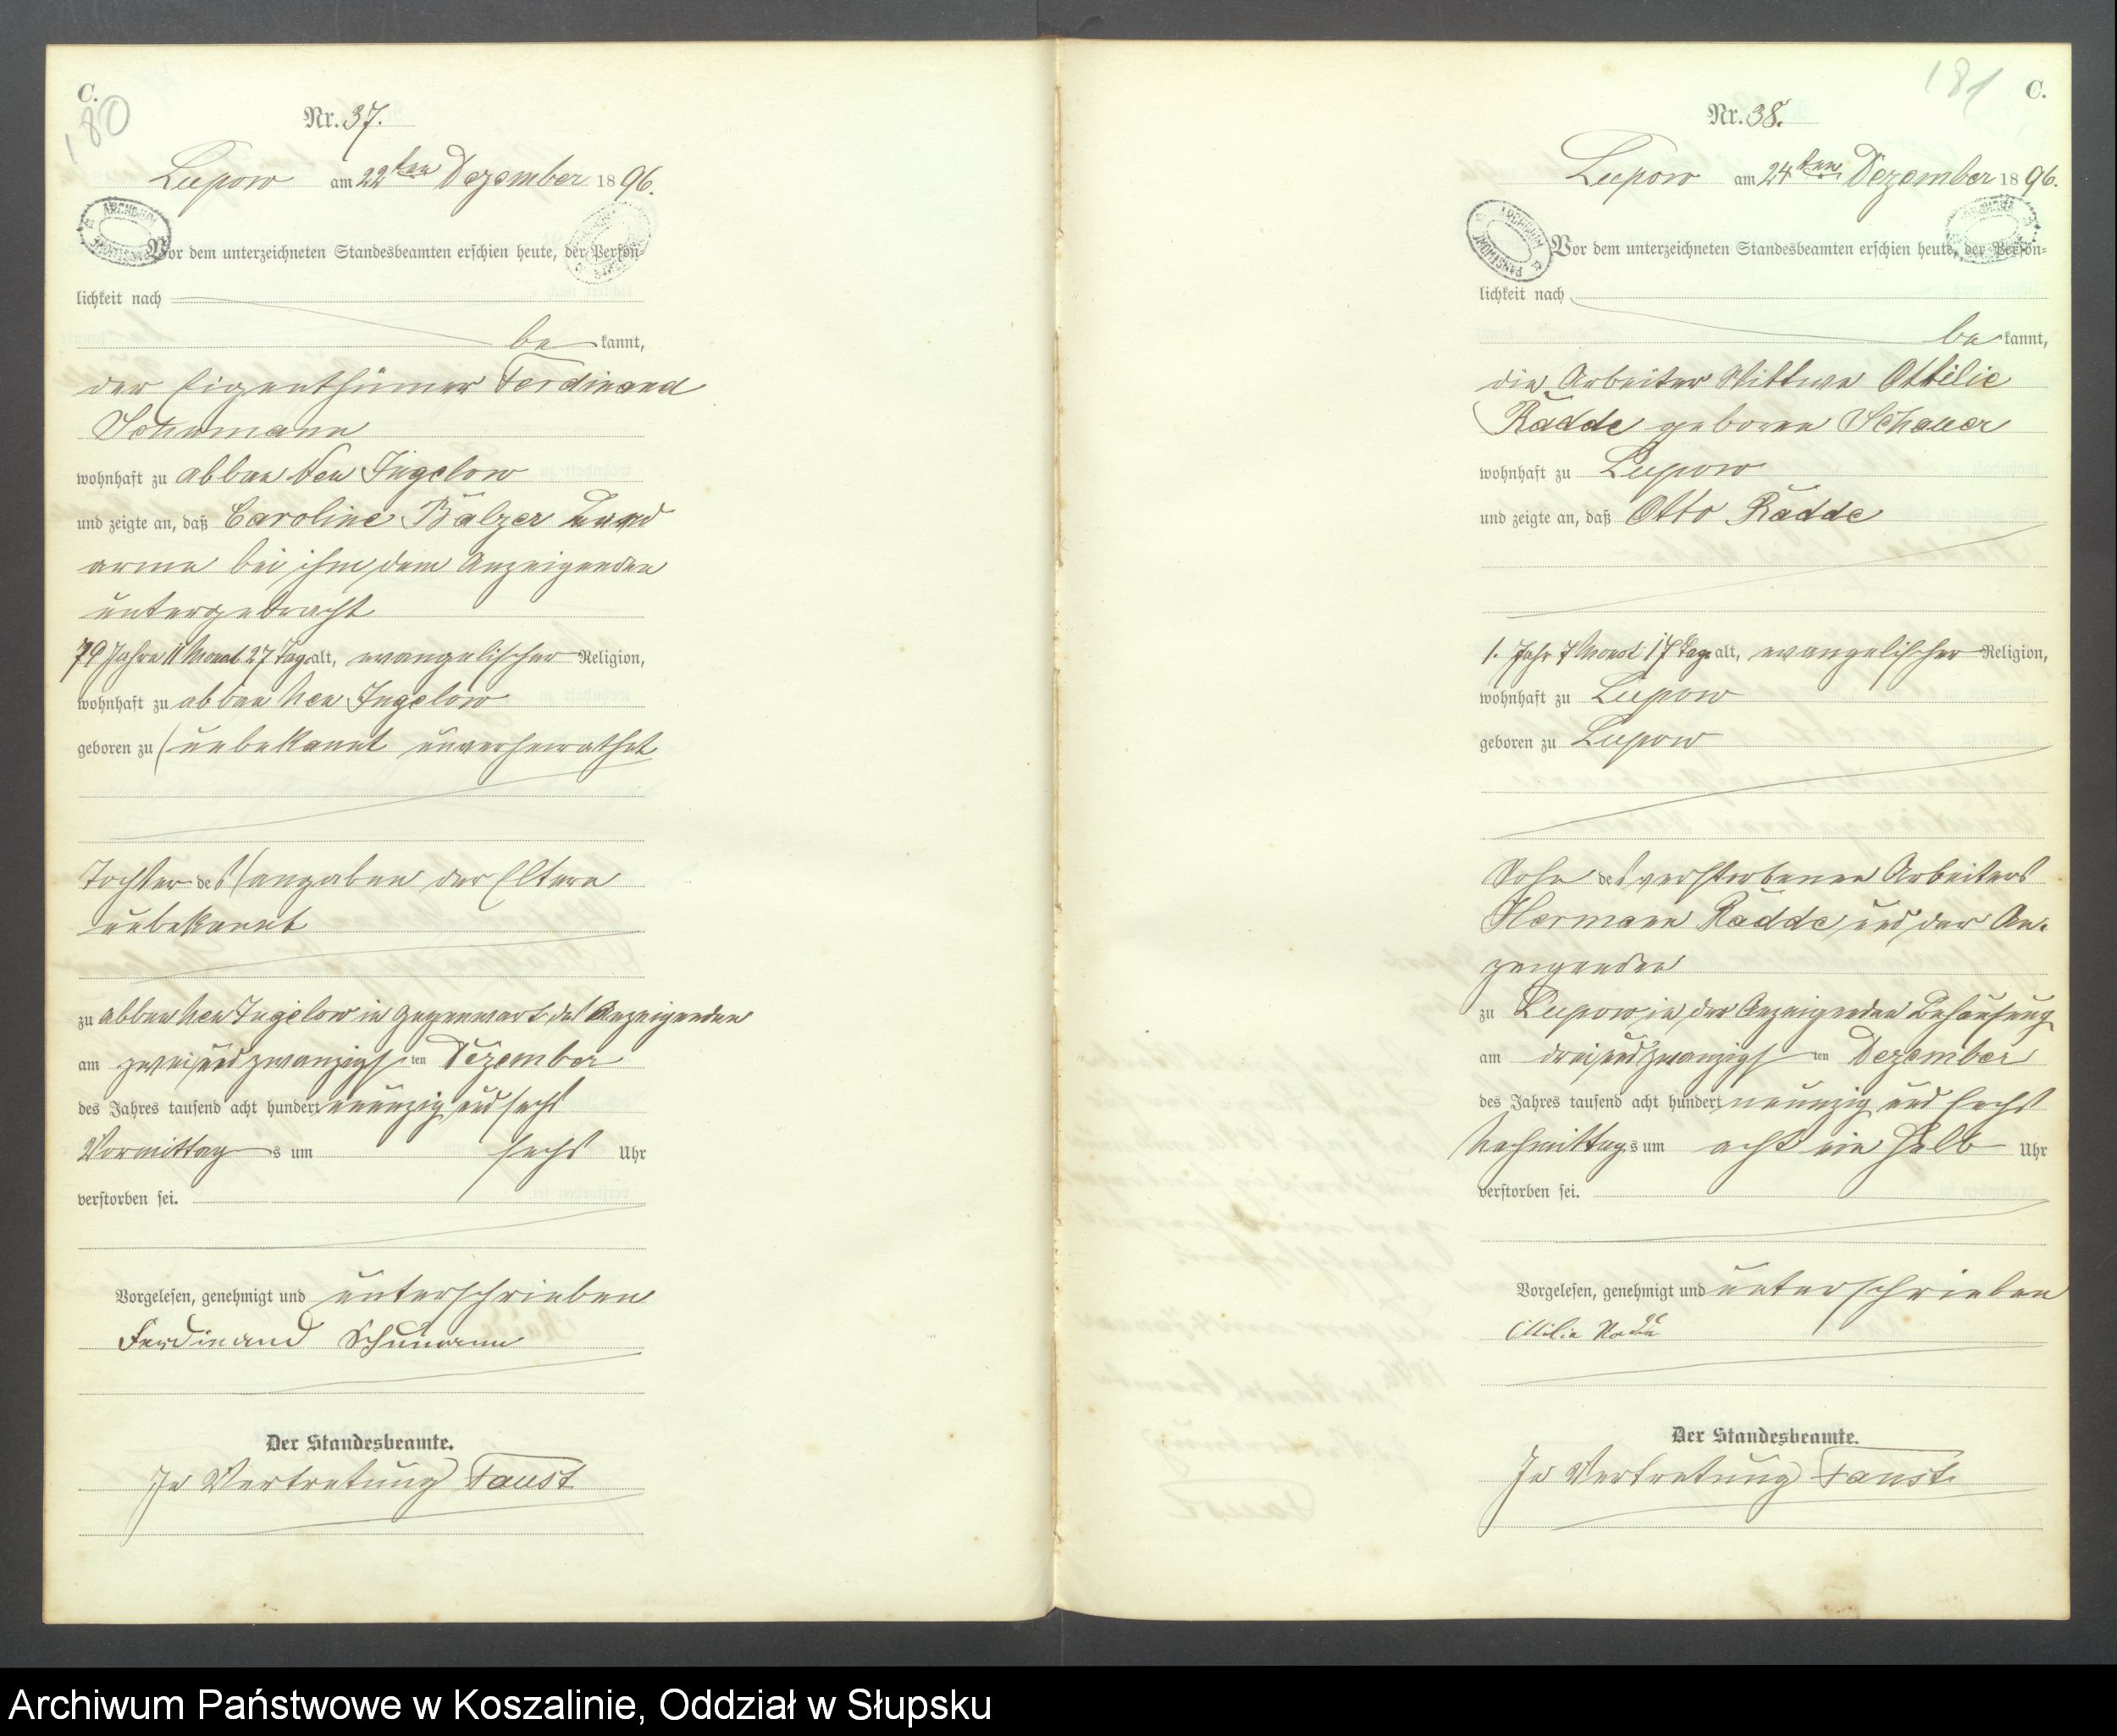 C.
180
Nr. 37.
Lupow am 22ten Dezember 1896.
Vor dem unterzeichneten Standesbeamten erschien heute, der Persön-
lichkeit nach
be kannt,
der Eigenthümer Ferdinand
Schumann
wohnhaft zu abbau Neu Jugelow
und zeigte an, daß Caroline Balzer Land
arme bei ihm dem Anzeigenden
untergebracht
79 Jahre 11 Monat 27 Tag alt, evangelischer Religion,
wohnhaft zu abbau Neu Jugelow
geboren zu (unbekannt unverheirathet
Tochter des (angaben der Eltern
unbekannt
zu abbau Neu Jugelow in Gegenwart des Anzeigenden
am zwei und zwanzigs ten Dezember
des Jahres tausend acht hundert neunzig und sechs
Vormittag s um sechs Uhr
verstorben sei.
Vorgelesen, genehmigt und unterschrieben
Ferdinand Schumann
Der Standesbeamte.
In Vertretung Faust
181
C.
Nr. 38.
Lupow am 24ten Dezember 1896.
Vor dem unterzeichneten Standesbeamten erschien heute, der Persön-
lichkeit nach
be kannt,
die Arbeiter Wittwe Ottilie
Radde geborne Schauer
wohnhaft zu Lupow
und zeigte an, daß Otto Radde
1. Jahr 7 Monat 17 Tage alt, evangelischer Religion,
wohnhaft zu Lupow
geboren zu Lupow
Sohn des verstorbenen Arbeiters
Hermann Radde und der An-
zeigenden
zu Lupow in der Anzeigenden Behausung
am drei und zwanzigs ten Dezember
des Jahres tausend acht hundert neunzig und sechs
Nachmittag s um acht ein halb Uhr
verstorben sei.
Vorgelesen, genehmigt und unterschrieben
Ottilie
Der Standesbeamte.
In Vertretung Faust
Archiwum Państwowe w Koszalinie, Oddział w Słupsku